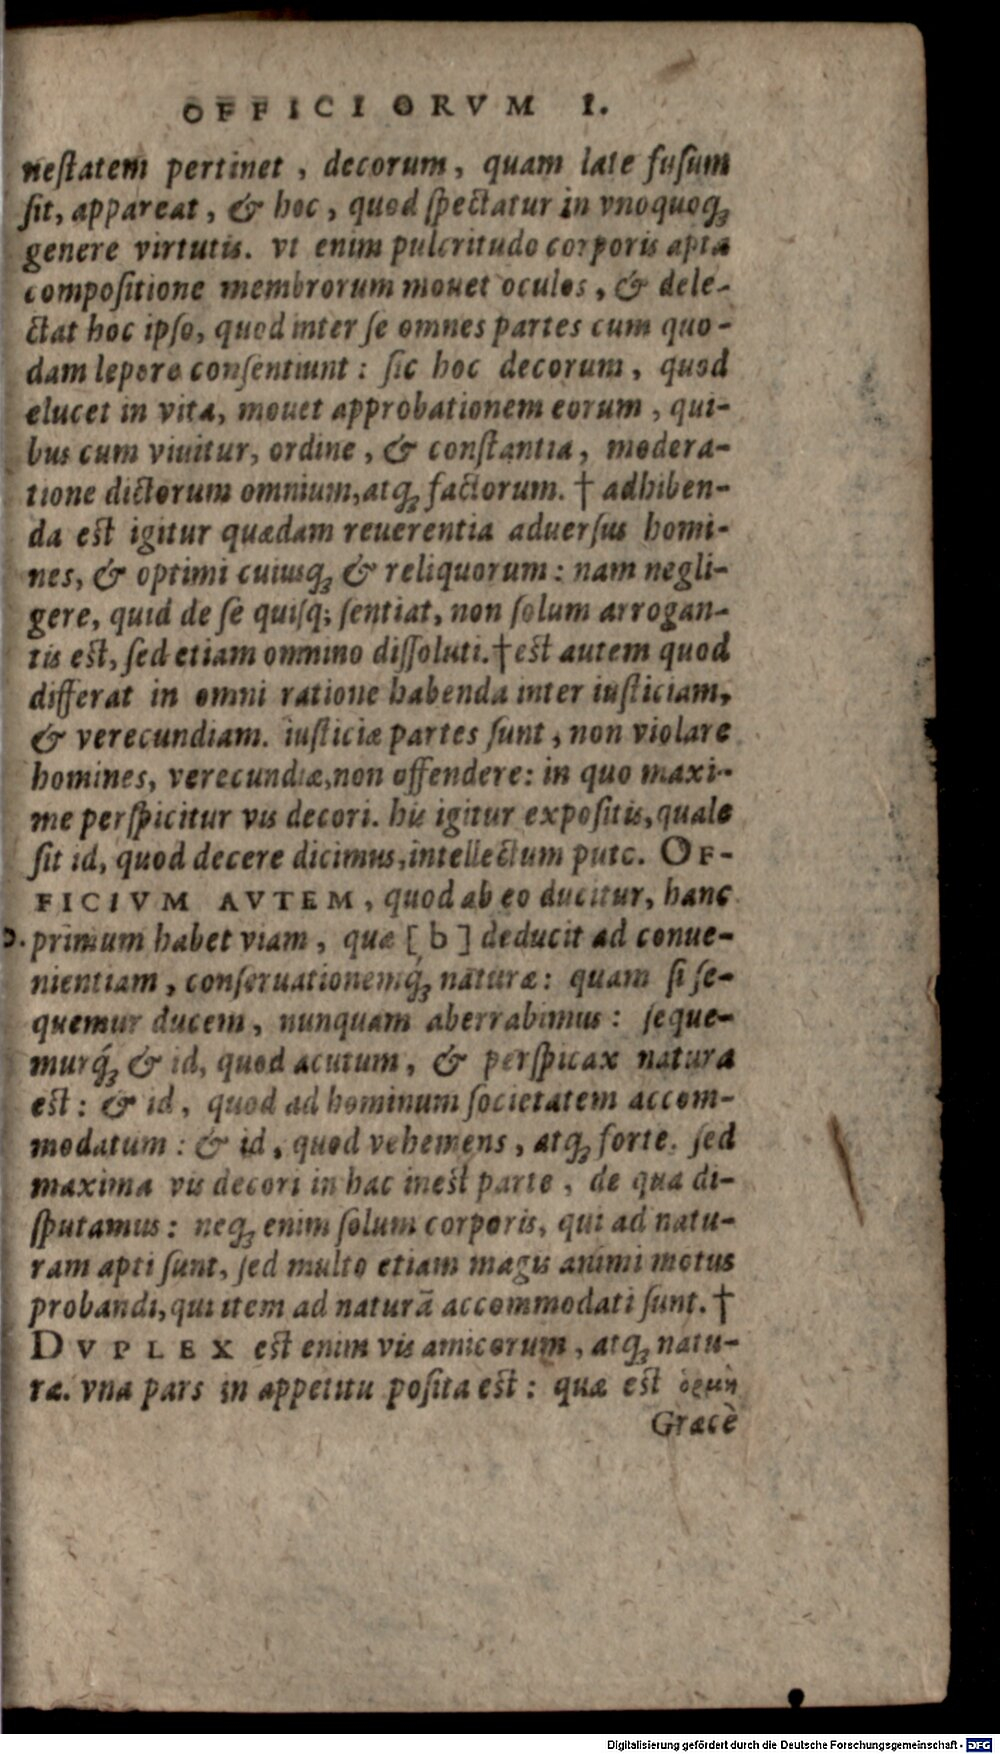 OFFICIORVM I.
neſtatem pertinet, decorum, quam late fuſum
ſit, appareat, & hoc, quod ſpectatur in vnoquoq;
genere virtutis. vt enim pulcritudo corporis apta
compoſitione membrorum mouet oculos, & dele-
ctat hoc ipſo, quod inter ſe omnes partes cum quo-
dam lepore conſentiunt: ſic hoc decorum, quod
elucet in vita, mouet approbationem eorum, qui-
bus cum viuitur, ordine, & conſtantia, modera-
tione dictorum omnium, atq; factorum. † adhiben-
da eſt igitur quædam reuerentia aduerſus homi-
nes, & optimi cuiuſq; & reliquorum: nam negli-
gere, quid de ſe quiſq; ſentiat, non ſolum arrogan-
tis eſt, ſed etiam omnino diſſoluti. † eſt autem quod
differat in omni ratione habenda inter iuſticiam,
& verecundiam. iuſticiæ partes ſunt, non violare
homines, verecundiæ, non offendere: in quo maxi-
me perſpicitur vis decori. his igitur expoſitis, quale
ſit id, quod decere dicimus, intellectum puto. OF-
FICIVM AVTEM, quod ab eo ducitur, hanc
primum habet viam, quæ [ b ] deducit ad conue-
nientiam, conſeruationemq́; naturæ: quam ſi ſe-
quemur ducem, nunquam aberrabimus: ſeque-
murq́; & id, quod acutum, & perſpicax natura
eſt: & id, quod ad hominum ſocietatem accom-
modatum: & id, quod vehemens, atq; forte. ſed
maxima vis decori in hac ineſt parte, de qua di-
ſputamus: neq; enim ſolum corporis, qui ad natu-
ram apti ſunt, ſed multo etiam magis animi motus
probandi, qui item ad naturā accommodati ſunt. †
DVPLEX eſt enim vis amicorum, atq; natu-
ræ. vna pars in appetitu poſita eſt: quæ eſt ὁρμὴ
Græcè
Digitalisierung gefördert durch die Deutsche Forschungsgemeinschaft - DFG